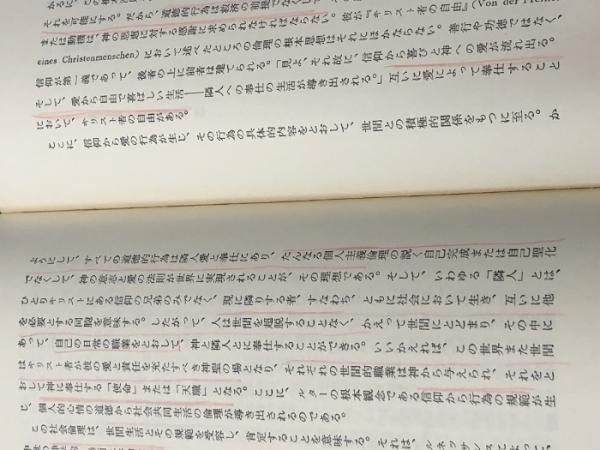 それを可能にする。だから、道徳的行為は救済の前提でなくして
または動機は、神の恩恵に対する感謝に求められなければならない。彼が『キリスト者の自由』(Von der Freiheit
eines Christenmenschen)において述べたところの倫理の根本思想はそれにほかならない。善行や功徳ではなく、
信仰が第一義であって、後者の上に前者は建てられる。「見よ、それ故に、信仰から喜びと神への愛が流れ出る。
そして、愛から自由で喜ばしい生活――隣人への奉仕の生活が導き出される。」互いに愛によって奉仕すること
において、キリスト者の自由がある。
ここに、信仰から愛の行為が生じ、その行為の具体的内容をとおして、世間との積極的関係をもつに至る。か
ようにして、すべての道徳的行為は隣人愛と奉仕にあり、たんなる個人主義倫理の説く自己完成または自己聖化
でなくして、神の意志と愛の法則が世界に実現されることが、その理想である。そして、いわゆる「隣人」とは、
ひとりキリストにある信仰の兄弟のみでなく、現に隣りする者、すなわち、ともに社会において生き、互いに他
を必要とする同胞を意味する。したがって、人は世間を超脱することなく、かえって世間にとどまり、その中に
あって、自己の日常の職業をとおして、神と隣人とに奉仕することができる。いいかえれば、この世界また世間
はキリスト者が彼の愛と責任を充たすべき神聖の場となり、それぞれの世間的職業は神から与えられ、それをと
おして神に奉仕する「使命」または「天職」となる。ここに、ルターの根本観念である信仰から行為の規範が生
じ、個人的心情の道徳から社会共同生活の倫理が導き出されるのである。
この社会倫理は、世間生活とその規範を受容し、肯定することを意味する。それは、ルネッサンスによって、